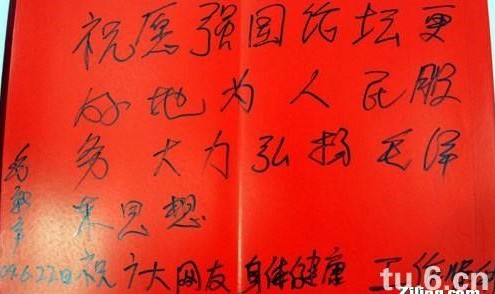 祝愿强国论坛更
好地为人民服
务 大力弘扬毛泽
东思想
祝广大网友 身体健康 工作顺
09.6.22日
tu6.cn
Ziling.com